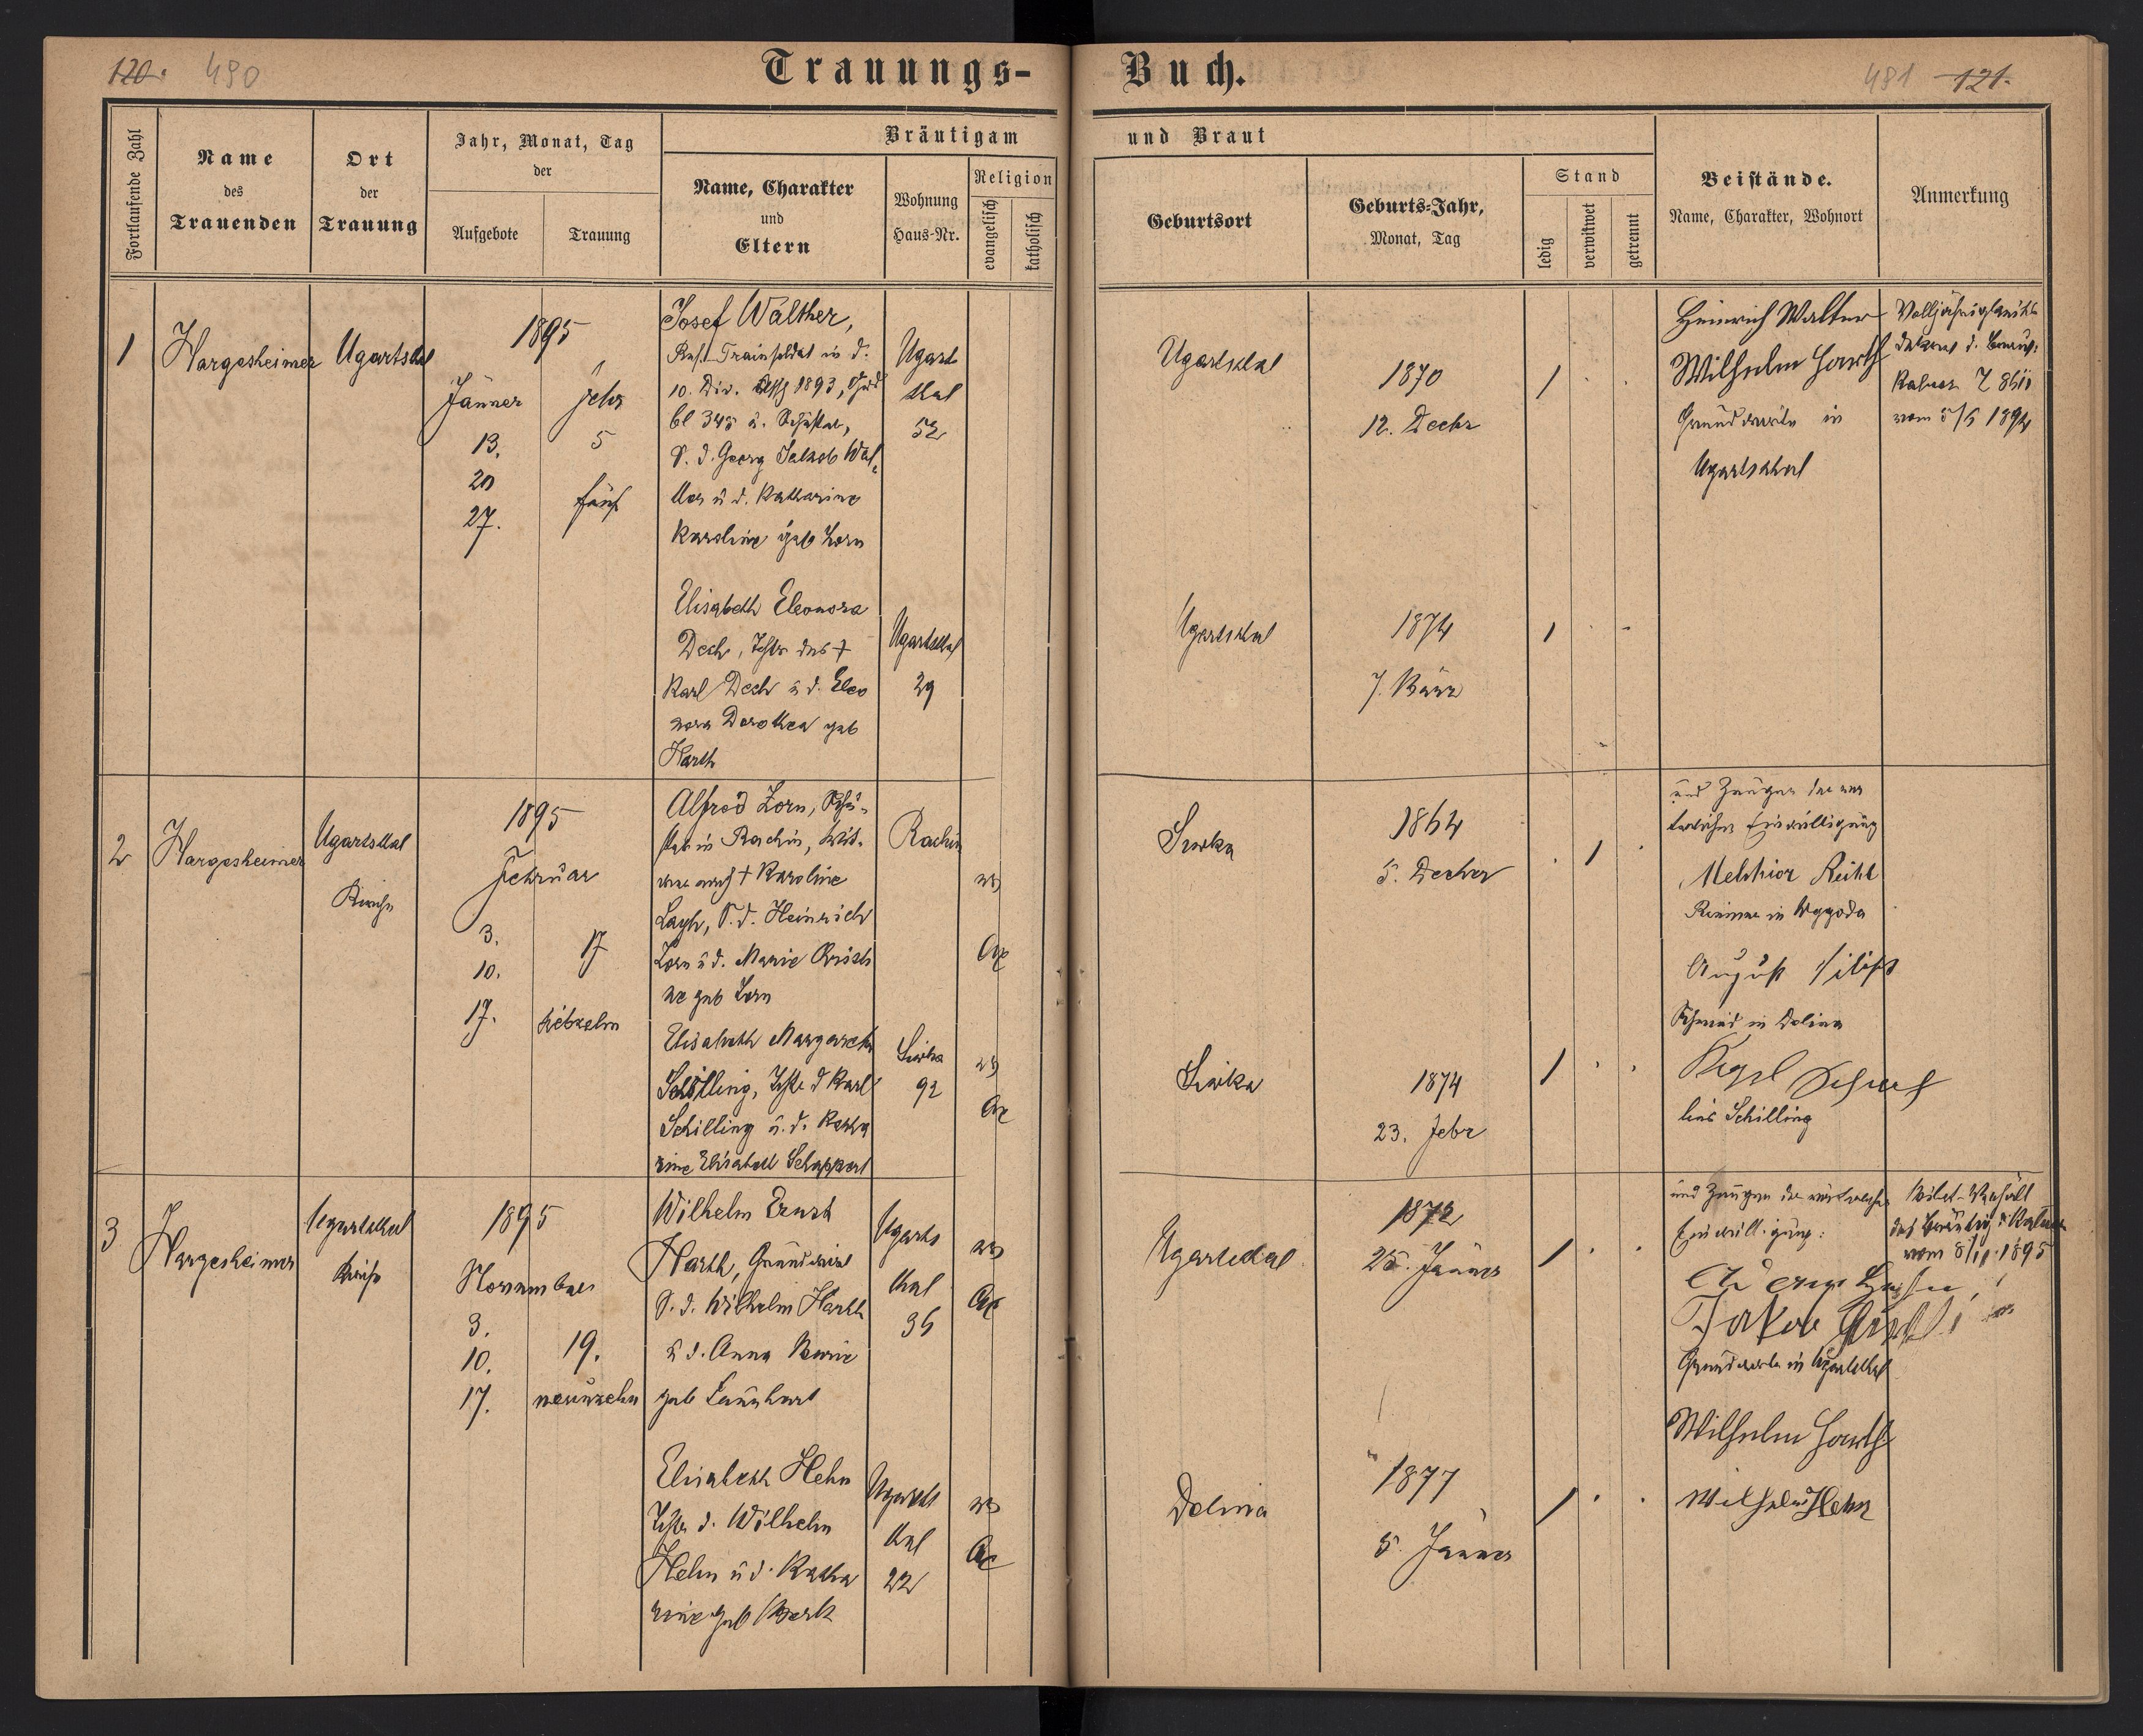 120. 490
Trauungs-
Buch.
491 121.
Fortlaufende Zahl
Name
des
Trauenden
Ort
der
Trauung
Jahr, Monat, Tag
der
Aufgebote
Trauung
Bräutigam
Name, Charakter
und
Eltern
Wohnung
Haus-Nr.
Religion
evangelisch
katholisch
und Braut
Geburtsort
Geburts-Jahr,
Monat, Tag
Stand
ledig
verwitwet
getrennt
Beistände.
Name, Charakter, Wohnort
Anmerkung
1
Hargesheimer
Ugartsthal
1895
Jänner
13.
20
27.
5
fünf
Josef Walther,
10. Div. 1893,
S. d. Georg Jakob Wal-
ther u d. Katharine
Karoline geb Zorn
Ugart
thal
52
Ugartsthal
1870
12. Decbr
Heinrich Walter
Wilhelm Harth
Grundwirte in
Ugartsthal
vom 5/5 1894
Elisabeth Eleonora
Dech, Tchtr des +
Karl Dech u d. Eleo
nora Dorothea geb
Harth
Ugartsthal
29
Ugartsthal
1874
7. März
2
Hargesheimer
Ugartsthal
Kirche
1895
Februar
3.
10.
17.
17
siebzehn
Alfred Zorn, Schu-
ster in Rachin, Wit-
wer nach + Karoline
Layh, S. d. Heinrich
Zorn u d. Marie Christi
ne geb Zorn
Rachin
Siwka
1864
5. Decber
und Zeugen der vä
terlichen Einwilligung
Melchior Reihl
in Wygoda
August
Schmid in Dolina
Schilling
Elisabeth Margareth
Schilling, Tchtr d Karl
Schilling u. d. Katha
rine Elisabeth Schappert
Siwka
92
Siwka
1874
23. Febr
3
Hargesheimer
Ugartsthal
Kirche
1895
November
3.
10.
17.
19.
neunzehn
Wilhelm Ernst
Harth, Grundwirt
S. d. Wilhelm Harth
u d. Anna Marie
geb Launhart
Ugarts
thal
36
Ugartsthal
1872
25. Jänner
und Zeugen der väterlichen
Einwilligung:
Jakob
Grundwirte in Ugartsthal
Wilhelm Harth
Wilhelm Hehn
vom 8/11 1895
Elisabeth Hehn
Tchtr d. Wilhelm
Hehn u d. Katha
rine geb
Ugarts
thal
22
Dolina
1877
5. Jänner